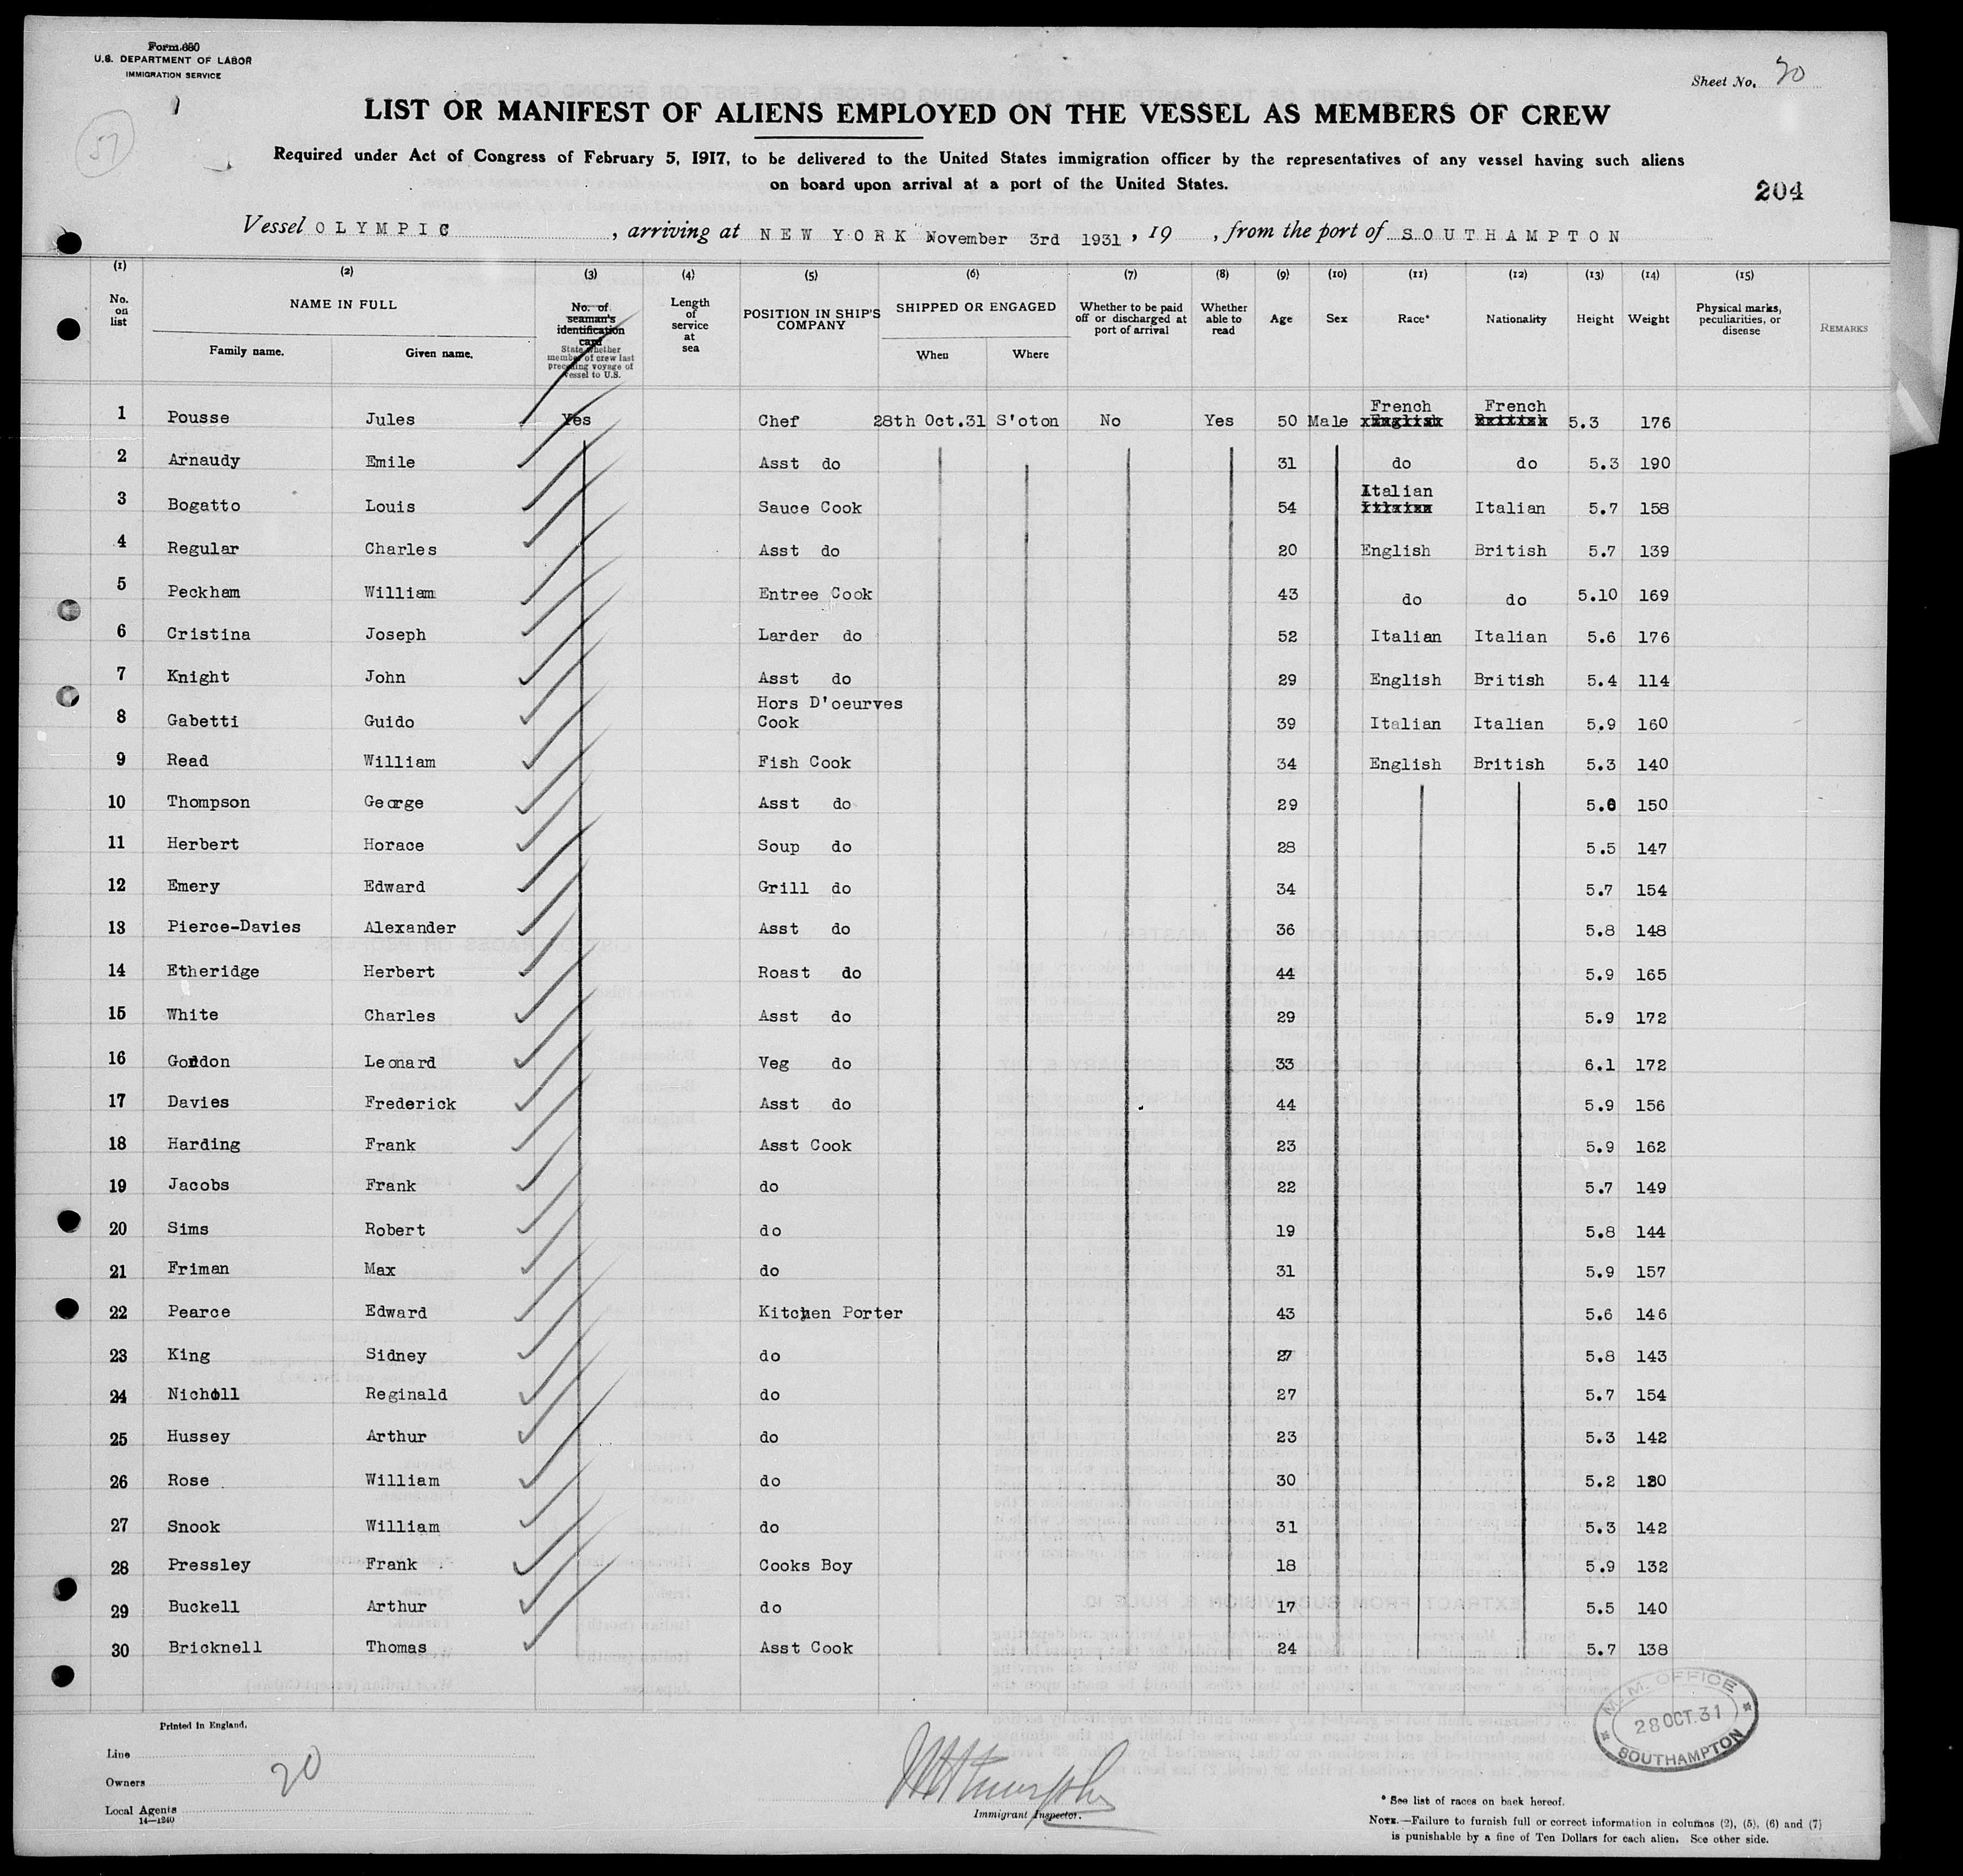 Form 680
U.S. DEPARTMENT OF LABOR
IMMIGRATION SERVICE
Sheet No. 20
57
LIST OR MANIFEST OF ALIENS EMPLOYED ON THE VESSEL AS MEMBERS OF CREW
Required under Act of Congress of February 5, 1917, to be delivered to the United States immigration officer by the representatives of any vessel having such aliens
on board upon arrival at a port of the United States.
204
Vessel OLYMPIC, arriving at NEW YORK November 3rd 1931, 19 , from the port of SOUTHAMPTON
(1) (2) (3) (4) (5) (6) (7) (8) (9) (10) (11) (12) (13) (14) (15)
No. on list NAME IN FULL Family name. Given name. No. of seaman's identification card State whether member of crew last preceding voyage of vessel to U.S. Length of service at sea POSITION IN SHIP'S COMPANY SHIPPED OR ENGAGED When Where Whether to be paid off or discharged at port of arrival Whether able to read Age Sex Race* Nationality Height Weight Physical marks, peculiarities, or disease REMARKS
French French
1 Pousse Jules Yes Chef 28th Oct.31 S'oton No Yes 50 Male English British 5.3 176
2 Arnaudy Emile Asst do 31 do do 5.3 190
Italian
3 Bogatto Louis Sauce Cook 54 Italian 5.7 158
4 Regular Charles Asst do 20 English British 5.7 139
5 Peckham William Entree Cook 43 do do 5.10 169
6 Cristina Joseph Larder do 52 Italian Italian 5.6 176
7 Knight John Asst do 29 English British 5.4 114
Hors D'oeurves
8 Gabetti Guido Cook 39 Italian Italian 5.9 160
9 Read William Fish Cook 34 English British 5.3 140
10 Thompson George Asst do 29 150
11 Herbert Horace Soup do 28 5.5 147
12 Emery Edward Grill do 34 5.7 154
13 Pierce-Davies Alexander Asst do 36 5.8 148
14 Etheridge Herbert Roast do 44 5.9 165
15 White Charles Asst do 29 5.9 172
16 Leonard Veg do 33 6.1 172
17 Davies Frederick Asst do 44 5.9 156
18 Harding Frank Asst Cook 23 5.9 162
19 Jacobs Frank do 22 5.7 149
20 Sims Robert do 19 5.8 144
21 Friman Max do 31 5.9 157
22 Pearce Edward Kitchen Porter 43 5.6 146
23 King Sidney do 27 5.8 143
24 Nicholl Reginald do 27 5.7 154
25 Hussey Arthur do 23 5.3 142
26 Rose William do 30 5.2
27 Snook William do 31 5.3 142
28 Pressley Frank Cooks Boy 18 5.9 132
29 Buckell Arthur do 17 5.5 140
30 Bricknell Thomas Asst Cook 24 5.7 138
M.M. OFFICE
28 OCT.31
SOUTHAMPTON
Printed in England.
Line
20
Owners
Local Agents
14—1240
Immigrant Inspector.
* See list of races on back hereof.
NOTE.—Failure to furnish full or correct information in columns (2), (5), (6) and (7)
is punishable by a fine of Ten Dollars for each alien. See other side.